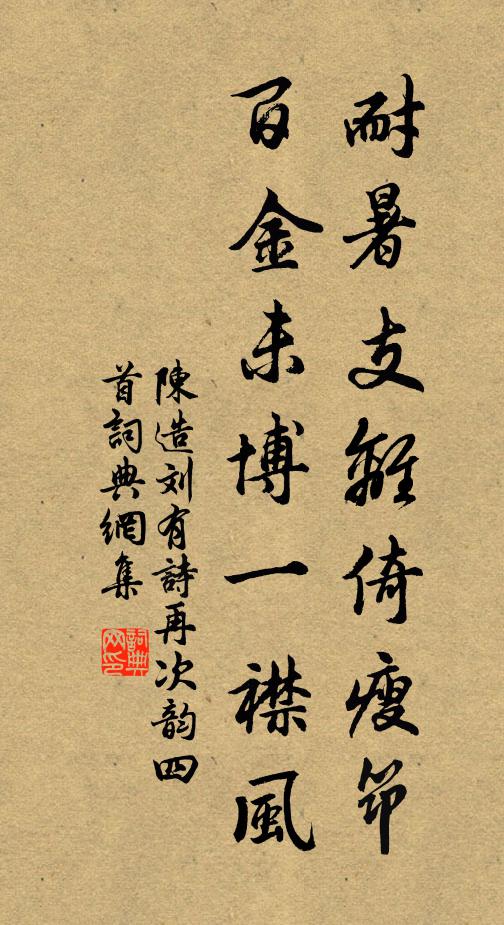 耐暑支離倚瘦筇
百金未博一襟風
陳造刘有詩再次韵四
首詞典網集
詞典
网印